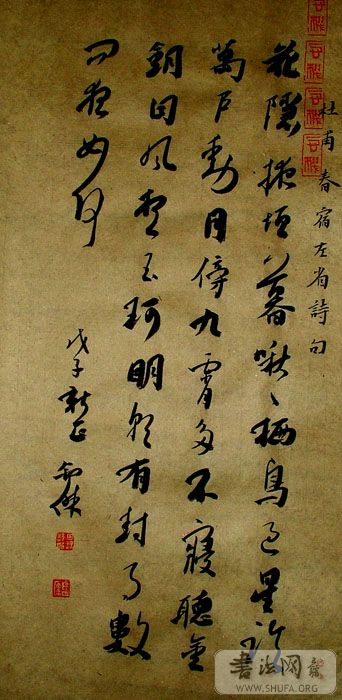 杜甫春宿左省詩句
花隱掖垣暮啾〻栖鳥過星臨
萬戶動月傍九霄多不寢聽金
鑰因風想玉珂明朝有封事數
問夜如何
戊子新正
書法网
WWW.SHUFA.ORG